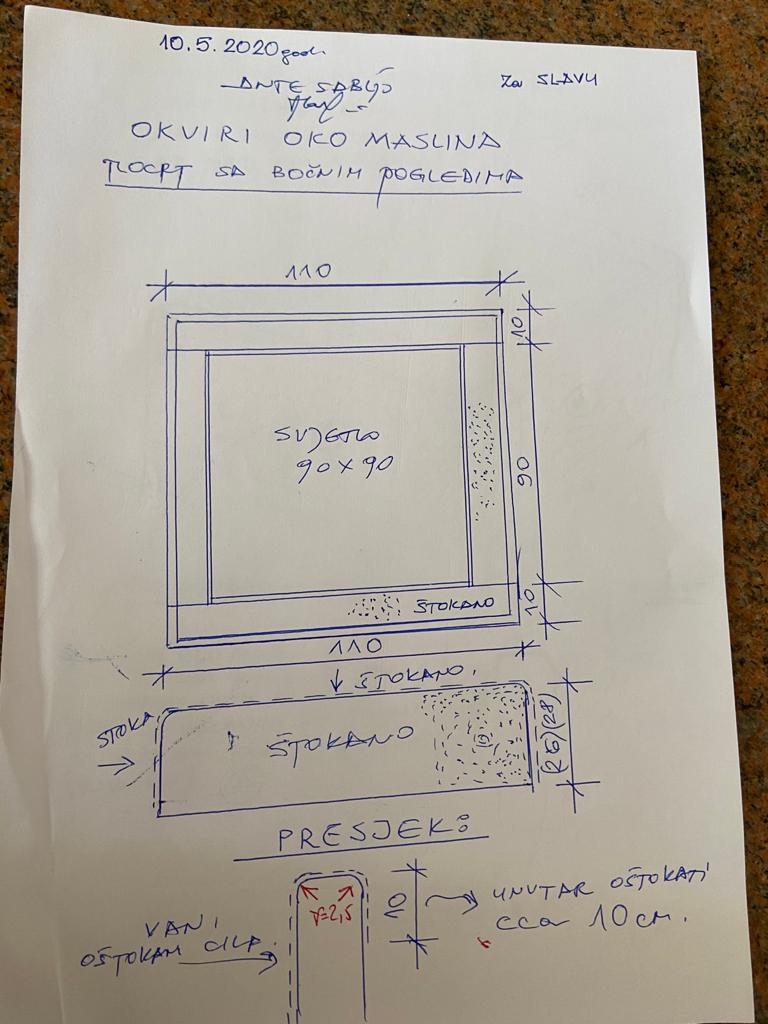 10.5.2020 god.
ANTE SABLJO
Za SLAVU
OKVIRI OKO MASLINA
TLOCRT SA BOČNIM POGLEDIMA
110
10
SVJETLO
90 x 90
90
ŠTOKANO
10
110
ŠTOKANO.
ŠTOKA
ŠTOKANO
(26)(28)
PRESJEK:
r=2,5
10
UNUTAR OŠTOKATI
cca 10 cm.
VANI
OŠTOKAN CILA